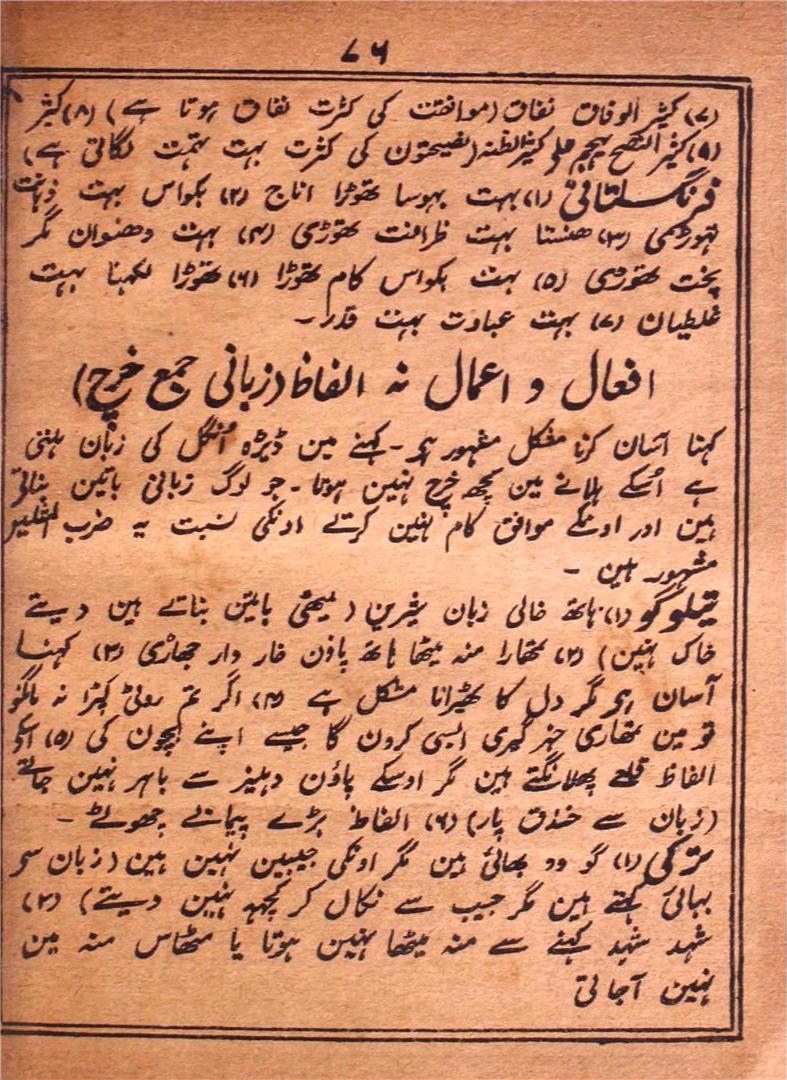 ۷۶
(۷) کثیر الوفاق نفاق (موافقت کی کثرت نفاق ہوتا ہے) (۸) کثیر
(۹) کثیر النصح یہجم علی کثیر الظنہ (نصیحتون کی کثرت بہت تہمت لگاتی ہے)
فرنگستانی (۱) بہت بہوسا تھوڑا اناج (۲) بکواس بہت ذہانت
تہوڑی (۳) ہنسنا بہت ظرافت تھوڑی (۴) بہت دھنوان مگر
پخت تھوڑی (۵) بہت بکواس کام تھوڑا (۶) تھوڑا لکھنا بہت
غلطیان (۷) بہت عبادت بہت قدر۔
افعال و اعمال نہ الفاظ (زبانی جمع خرچ)
کہنا آسان کرنا مشکل مشہور ہے ۔ کہنے مین ڈیڑہ اُنگل کی زبان ہلتی
ہے اُسکے ہلانے مین کچھ خرچ نہین ہوتا ۔ جو لوگ زبانی باتین بناتے
ہین اور اونکے موافق کام نہین کرتے اونکی نسبت یہ ضرب المثلین
مشہور ہین ۔
تیلوگو (۱) ہاتھ خالی زبان شیرین (میٹھی باتین بناتے ہین دیتے
خاک نہین) (۲) تمھارا منہ میٹھا ہاتھ پاؤن خار دار جھاڑی (۳) کہنا
آسان ہے مگر دل کا ٹھیرانا مشکل ہے (۴) اگر تم روٹی کپڑا نہ مانگو
تو مین تمھاری خبر گیری ایسی کرون گا جیسے اپنے بچون کی (۵) اسکے
الفاظ قلعے پھلانگتے ہین مگر اوسکے پاؤن دہلیز سے باہر نہین جاتے
(زبان سے خندق پار) (۶) الفاظ بڑے پیمانے چھوٹے ۔
ترکی (۱) گو وہ بھائی ہین مگر اونکی جیبین نہین ہین (زبان سے
بہائی کہتے ہین مگر جیب سے نکال کر کچھہ نہین دیتے) (۲)
شہد شہد کہنے سے منہ میٹھا نہین ہوتا یا مٹھاس منہ مین
نہین آجاتی